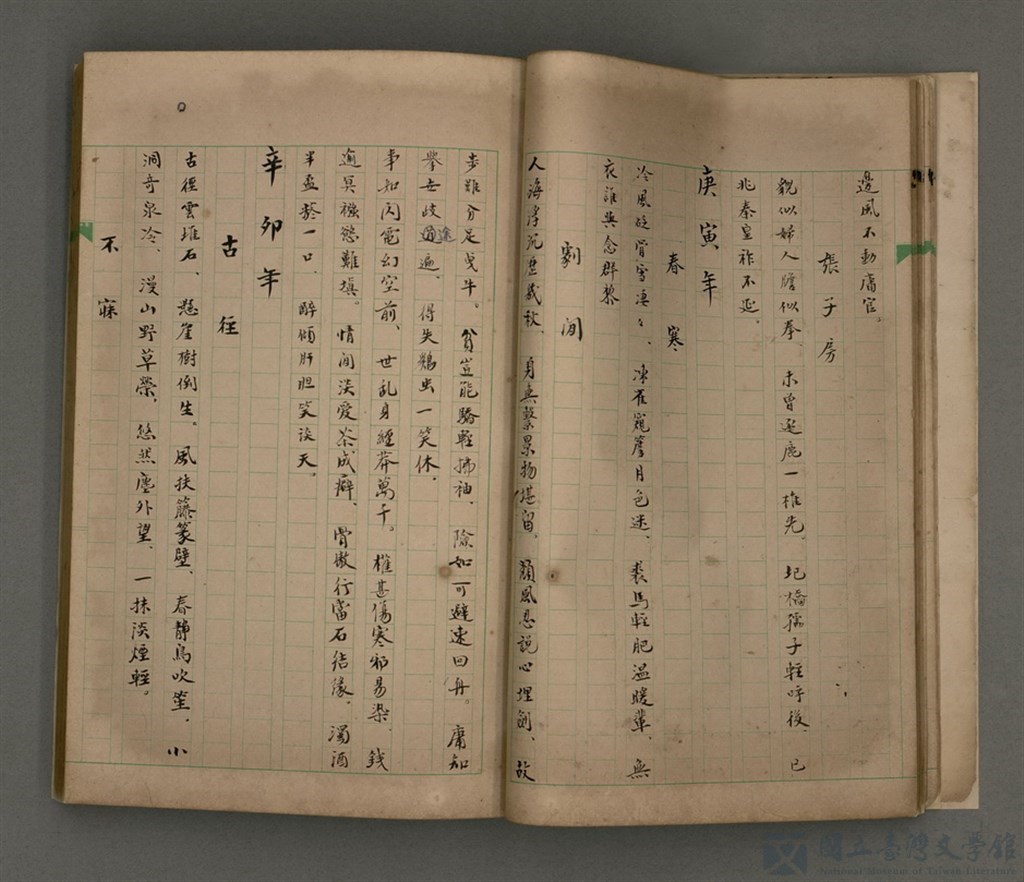 邊風不動庸官。
張子房
貌似婦人膽似拳、未曾逐鹿一椎先。圯橋孺子輕呼後、已
兆秦皇祚不延。
庚寅年
春寒
冷風砭骨雪凄々、凍雀窺簷月色迷、裘馬輕肥温暖輩、無
衣誰與念群黎
劇間
人海浮沉歷幾秋、身無繫累物堪留。頹風忍說心埋劍、故
步難分足曳牛。貧豈能驕輕拂袖、險如可避速回舟。庸知
舉世岐途遍、得失鷄虫一笑休。
事如閃電幻空前、世乱身經莽萬千。權甚傷寒邪易染、錢
逾冥襁慾難填。情間淡愛茶成癖、骨傲行當石結緣。濁酒
半盃菸一口、醉傾肝胆笑談天。
辛卯年
古徑
古徑雲堆石、懸崖樹倒生。風扶籐篆壁、春静鳥吹笙、小
洞奇泉冷、漫山野草榮、悠然塵外望、一抹淡煙輕。
不寐
國立臺灣文學館
National Museum of Taiwan Literature